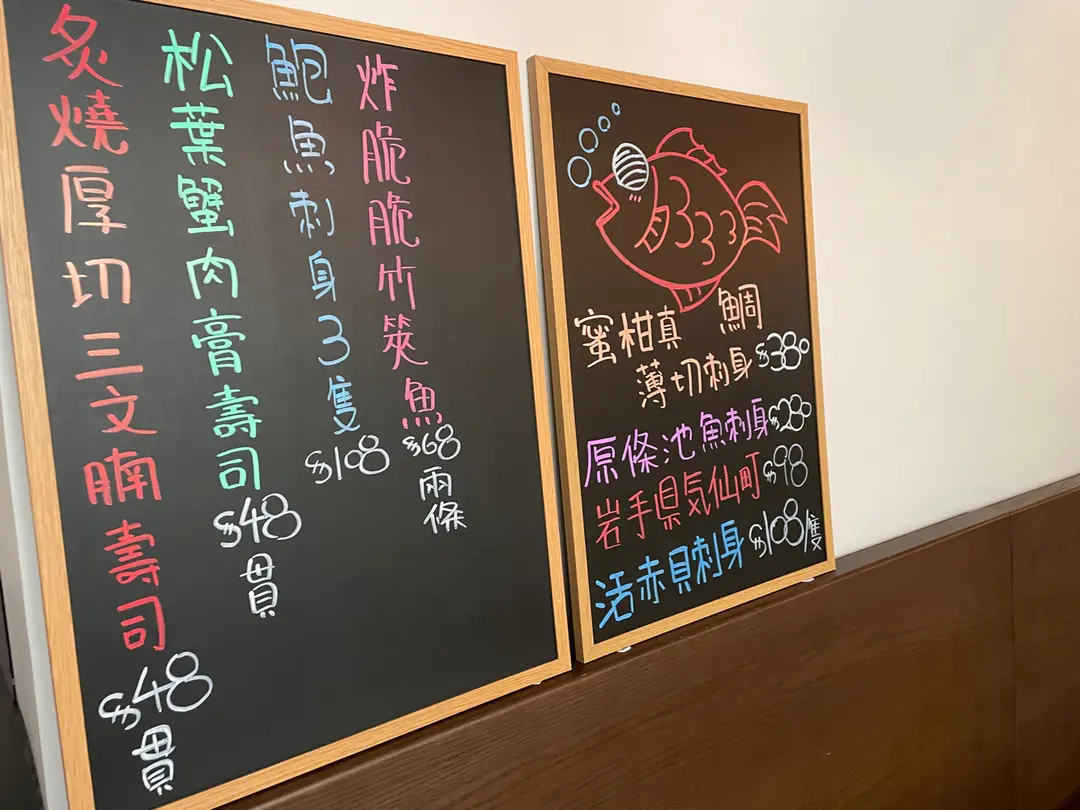 炙燒厚切三文腩壽司
$48
貫
松葉蟹肉膏壽司
$48
貫
鮑魚刺身3隻
$108
炸脆脆竹筴魚
$68
兩條
蜜柑真 鯛
薄切刺身 $380
原條池魚刺身 $280
岩手県気仙町 $98
活赤貝刺身 $108/隻